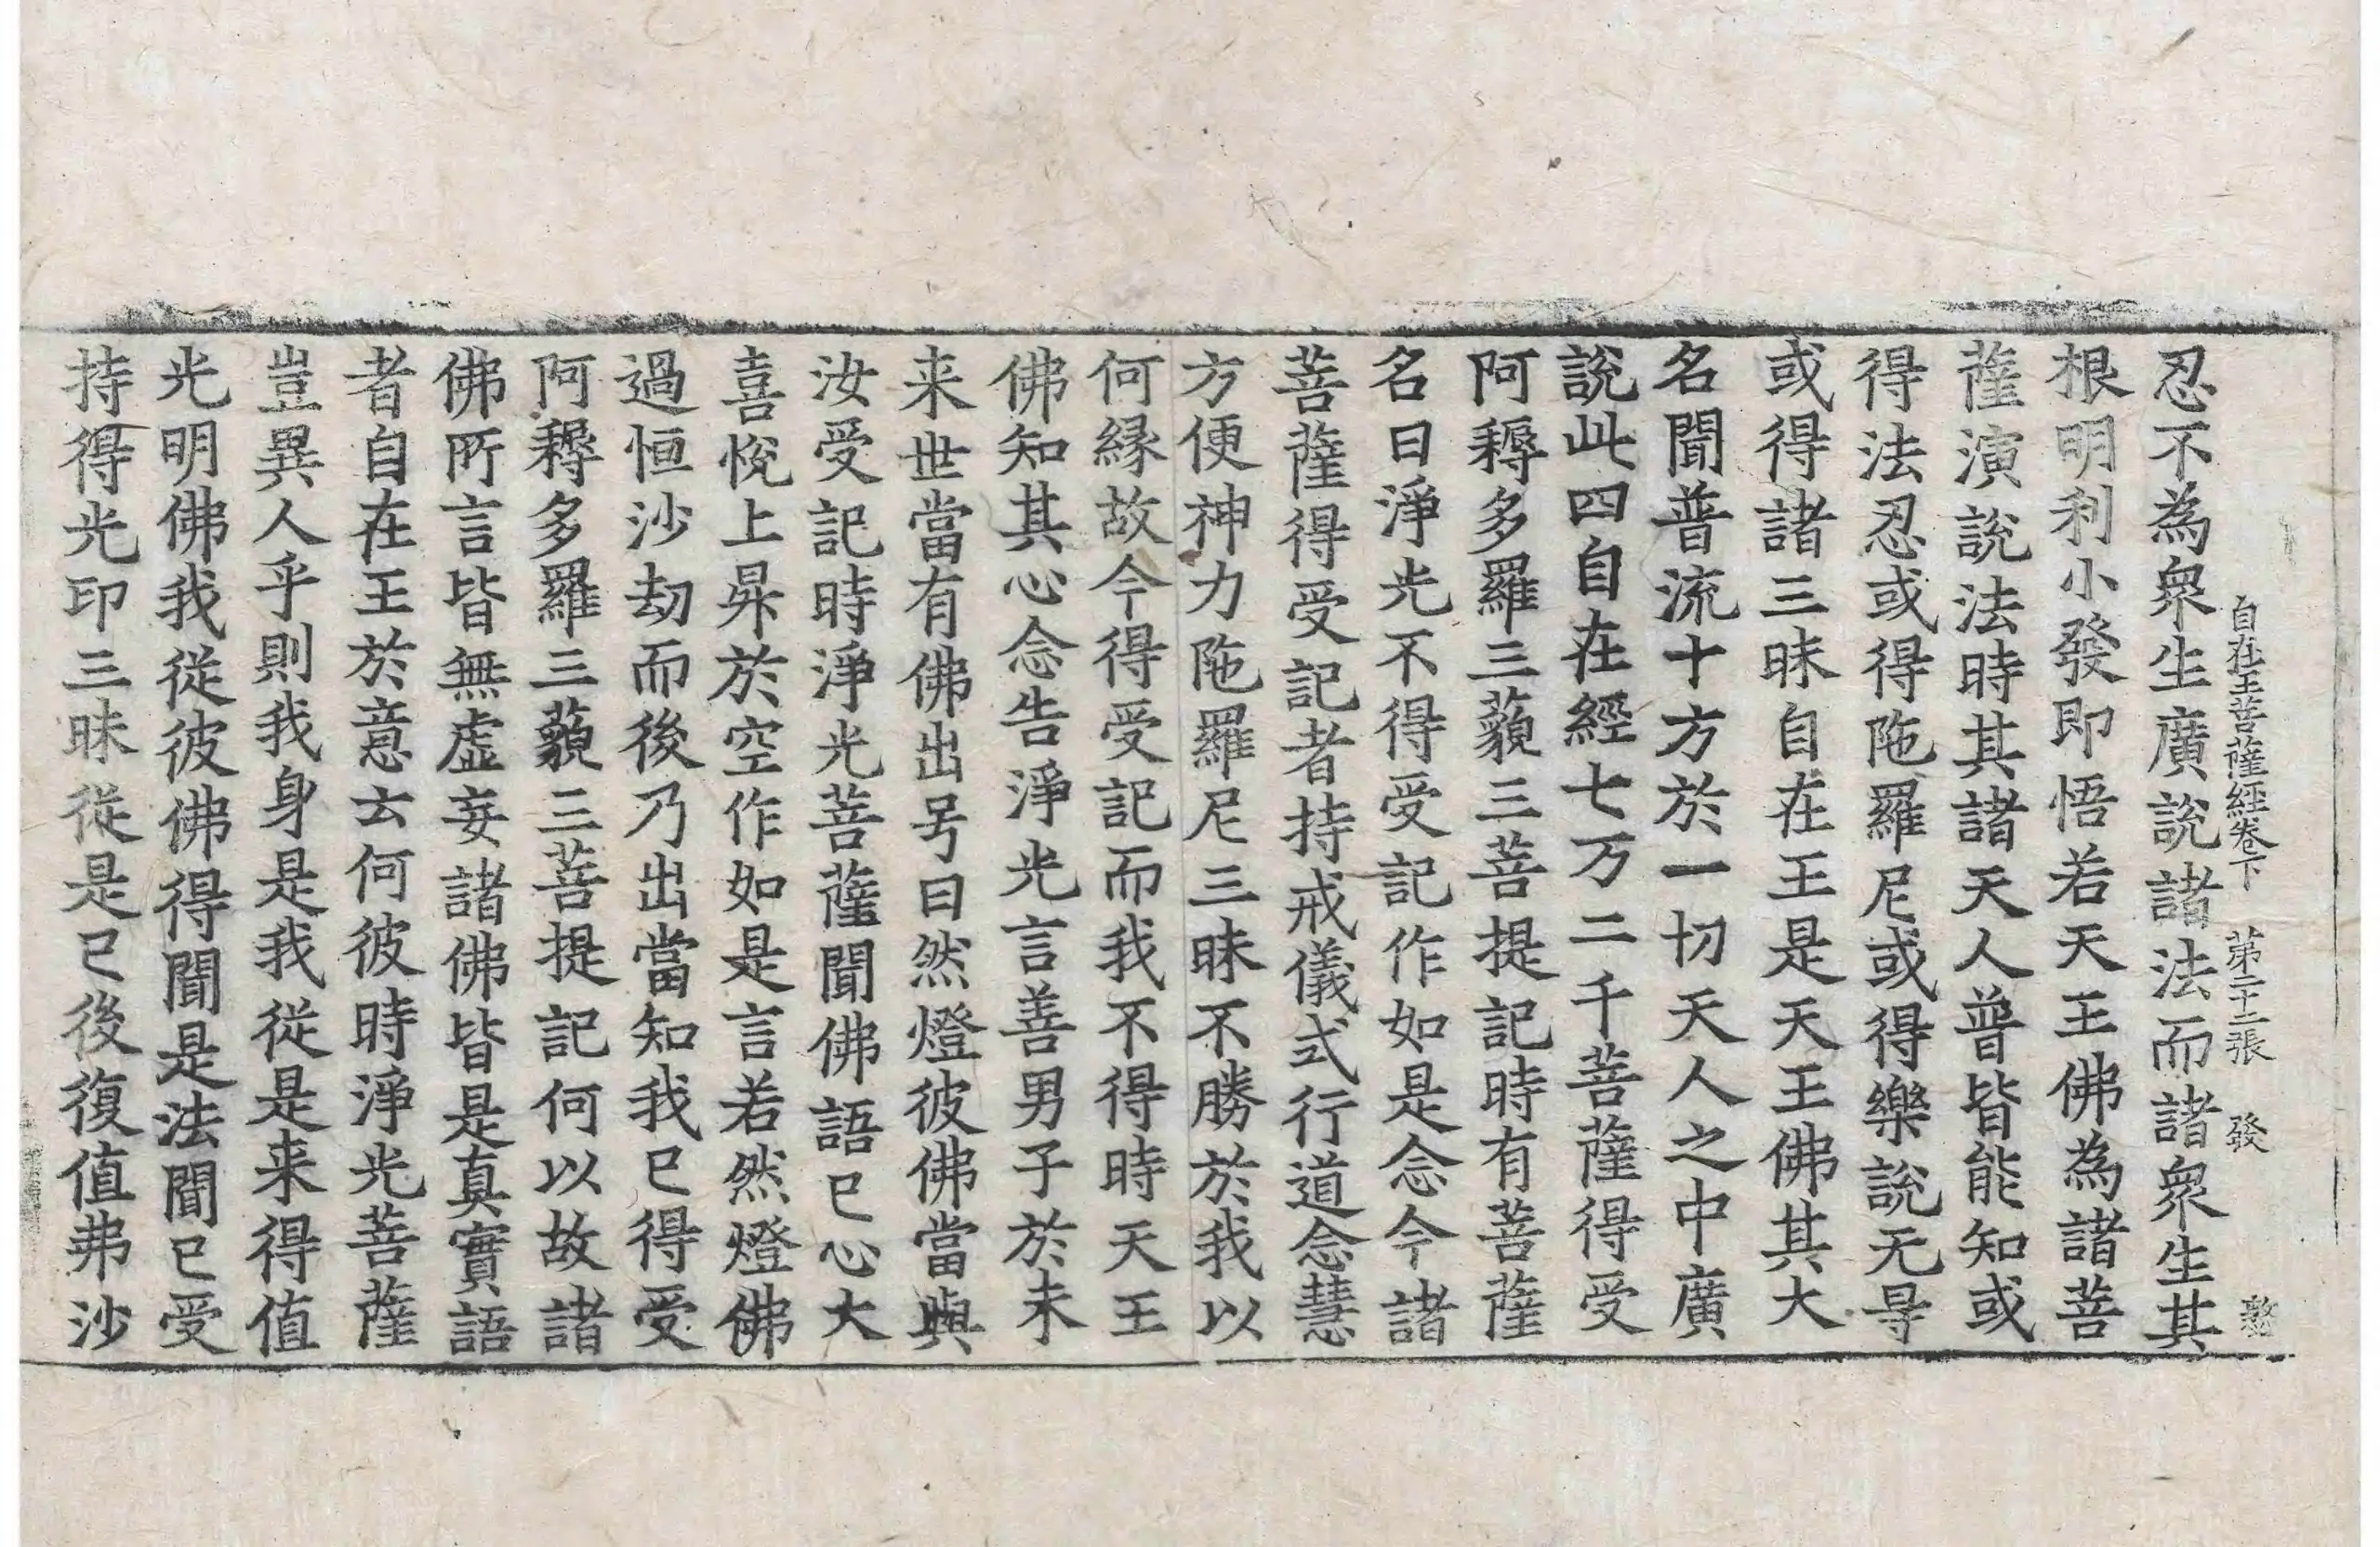 自在王菩薩經卷下 第二十二張 發
忍不為衆生廣說諸法而諸衆生其
根明利小發即悟若天王佛為諸菩
薩演說法時其諸天人普皆能知或
得法忍或得陁羅尼或得樂說无㝵
或得諸三昧自在王是天王佛其大
名聞普流十方於一切天人之中廣
說此四自在經七万二千菩薩得受
阿耨多羅三藐三菩提記時有菩薩
名曰淨光不得受記作如是念今諸
菩薩得受記者持戒儀式行道念慧
方便神力陁羅尼三昧不勝於我以
何緣故今得受記而我不得時天王
佛知其心念告淨光言善男子於未
来世當有佛出号曰然燈彼佛當與
汝受記時淨光菩薩聞佛語已心大
喜悅上昇於空作如是言若然燈佛
過恒沙劫而後乃出當知我已得受
阿耨多羅三藐三菩提記何以故諸
佛所言皆無虛妄諸佛皆是真實語
者自在王於意云何彼時淨光菩薩
豈異人乎則我身是我從是来得值
光明佛我從彼佛得聞是法聞已受
持得光印三昧從是已後復值弗沙